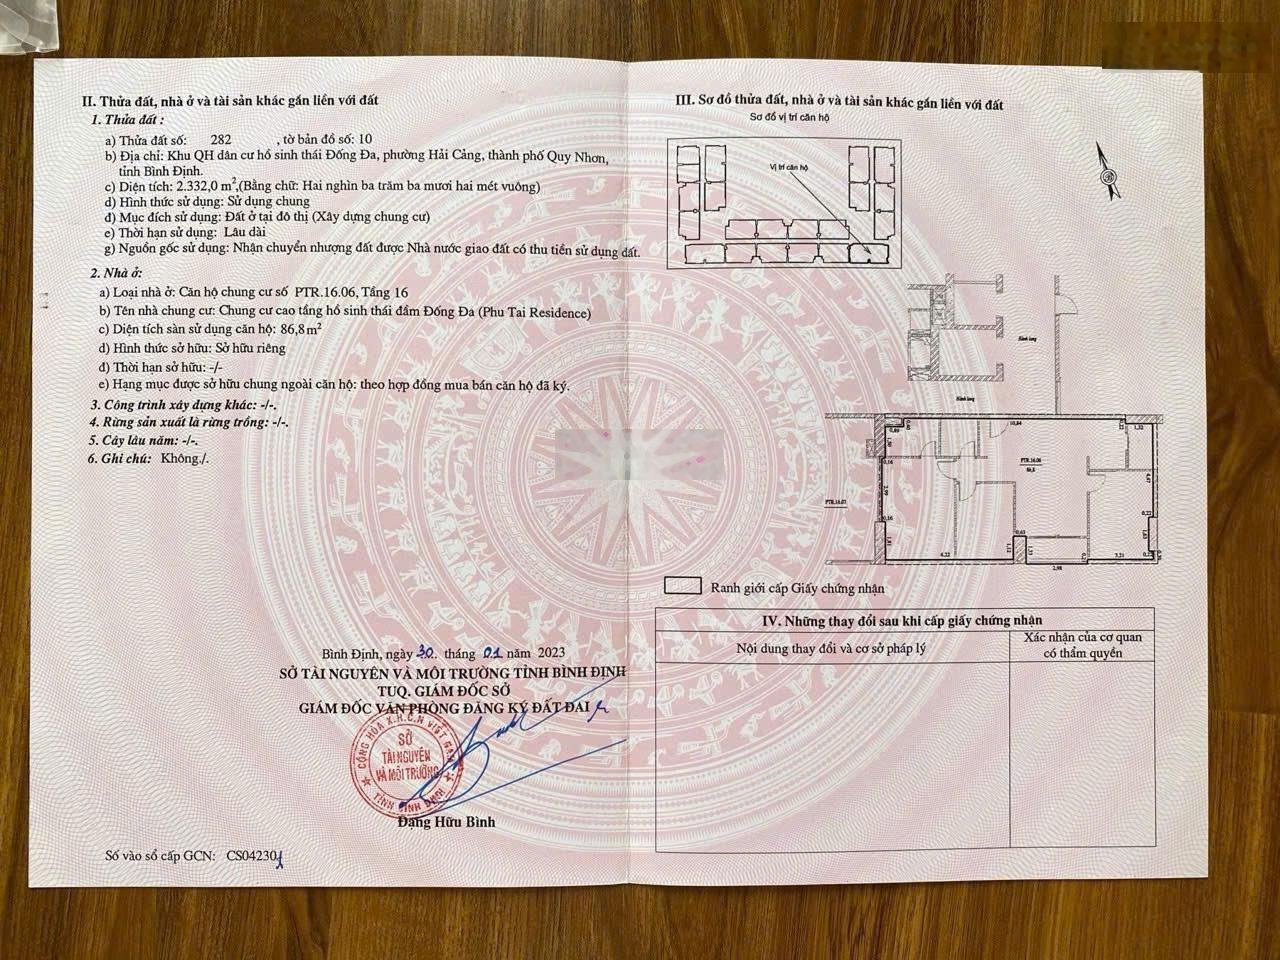 II. Thửa đất, nhà ở và tài sản khác gắn liền với đất
1. Thửa đất :
a) Thửa đất số: 282 , tờ bản đồ số: 10
b) Địa chỉ: Khu QH dân cư hồ sinh thái Đống Đa, phường Hải Cảng, thành phố Quy Nhơn,
tỉnh Bình Định.
c) Diện tích: 2.332,0 m²,(Bằng chữ: Hai nghìn ba trăm ba mươi hai mét vuông)
d) Hình thức sử dụng: Sử dụng chung
đ) Mục đích sử dụng: Đất ở tại đô thị (Xây dựng chung cư)
e) Thời hạn sử dụng: Lâu dài
g) Nguồn gốc sử dụng: Nhận chuyển nhượng đất được Nhà nước giao đất có thu tiền sử dụng đất.
2. Nhà ở:
a) Loại nhà ở: Căn hộ chung cư số PTR.16.06, Tầng 16
b) Tên nhà chung cư: Chung cư cao tầng hồ sinh thái đầm Đống Đa (Phu Tai Residence)
c) Diện tích sàn sử dụng căn hộ: 86,8 m²
d) Hình thức sở hữu: Sở hữu riêng
đ) Thời hạn sở hữu: -/-
e) Hạng mục được sở hữu chung ngoài căn hộ: theo hợp đồng mua bán căn hộ đã ký.
3. Công trình xây dựng khác: -/-.
4. Rừng sản xuất là rừng trồng: -/-.
5. Cây lâu năm: -/-.
6. Ghi chú: Không./.
Bình Định, ngày 30. tháng 01 năm 2023
SỞ TÀI NGUYÊN VÀ MÔI TRƯỜNG TỈNH BÌNH ĐỊNH
TUQ. GIÁM ĐỐC SỞ
GIÁM ĐỐC VĂN PHÒNG ĐĂNG KÝ ĐẤT ĐAI
CỘNG HÒA X.H.C.N VIỆT NAM
SỞ
TÀI NGUYÊN
VÀ MÔI TRƯỜNG
TỈNH BÌNH ĐỊNH
Đặng Hữu Bình
Số vào sổ cấp GCN: CS04230
III. Sơ đồ thửa đất, nhà ở và tài sản khác gắn liền với đất
Sơ đồ vị trí căn hộ
Vị trí căn hộ
Hành lang
Hành lang
10,84
1,32
PTR.16.06
86,8
PTR.16.07
2,99
0,16
0,16
4,22
2,98
3,21
Ranh giới cấp Giấy chứng nhận
IV. Những thay đổi sau khi cấp giấy chứng nhận
Nội dung thay đổi và cơ sở pháp lý
Xác nhận của cơ quan
có thẩm quyền